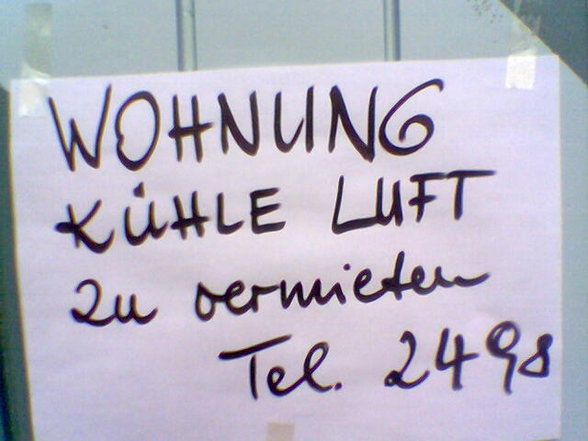 WOHNUNG
KÜHLE LUFT
zu vermieten
Tel. 2498